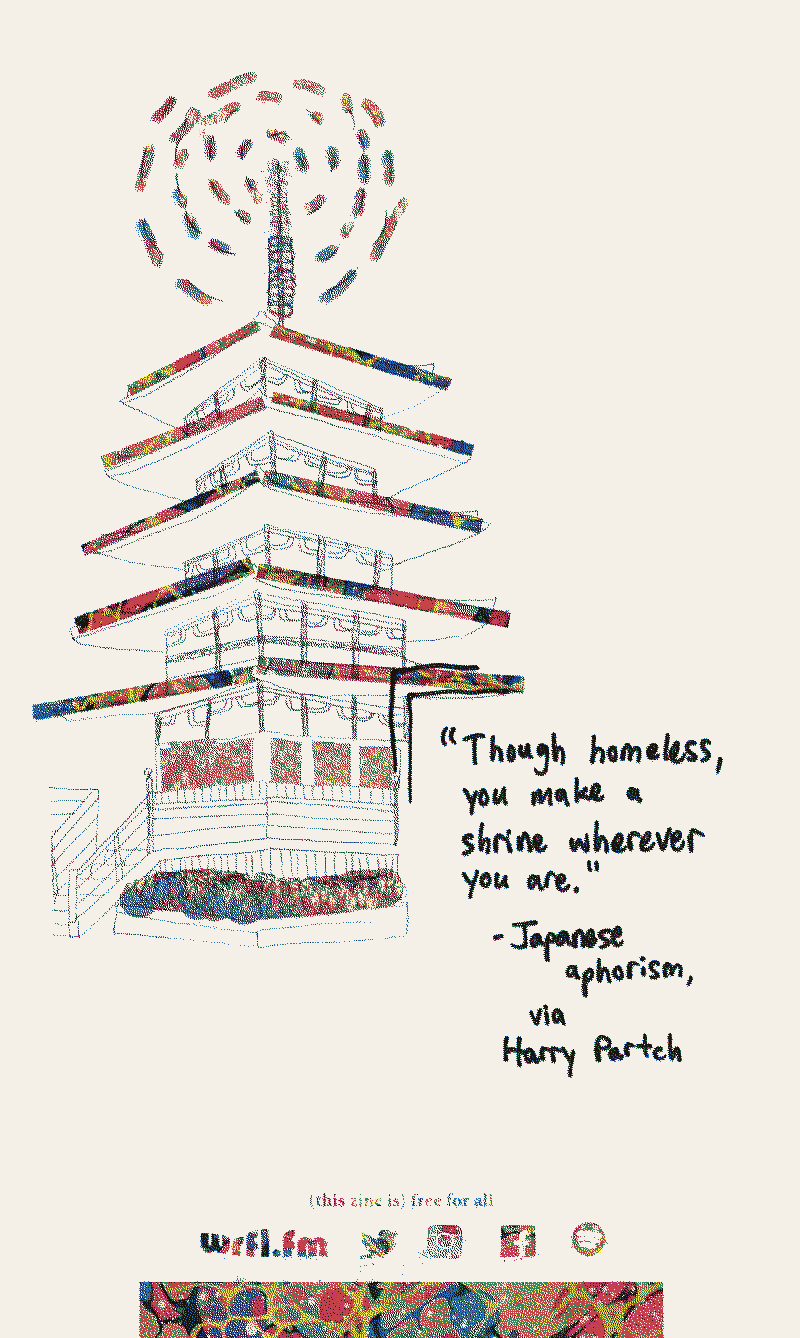 “Though homeless,
you make a
shrine wherever
you are.”
- Japanese
aphorism,
via
Harry Partch
(this zine is) free for all
wrfl.fm